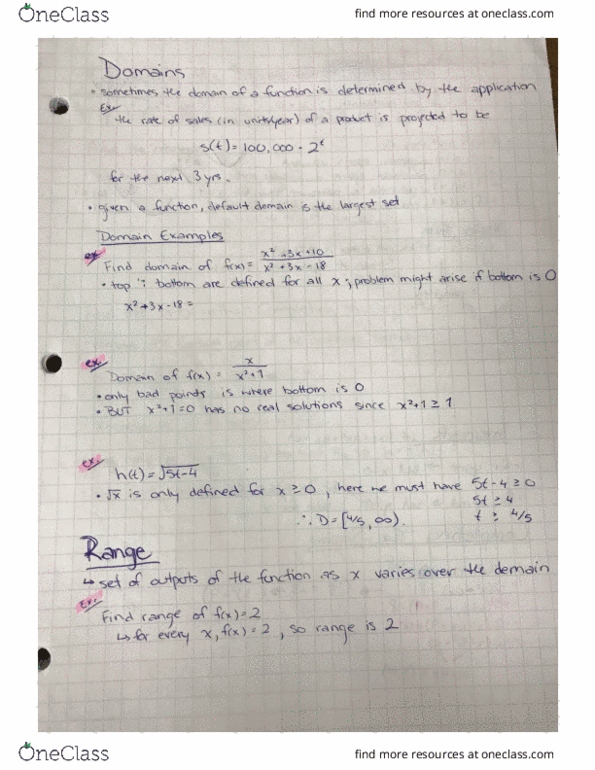 OneClass
find more resources at oneclass.com
Domains
• sometimes the domain of a function is determined by the application
Ex.
the rate of sales (in units/year) of a product is projected to be
s(t) = 100,000 · 2^t
for the next 3 yrs.
• given a function, default domain is the largest set
Domain Examples
ex.
Find domain of f(x) = x² + 3x + 10 / x² + 3x - 18
• top & bottom are defined for all x; problem might arise if bottom is 0
x² + 3x - 18 =
ex.
Domain of f(x) = x / x² + 1
• only bad points is where bottom is 0
• BUT x² + 1 = 0 has no real solutions since x² + 1 ≥ 1
ex.
h(t) = √5t - 4
• √x is only defined for x ≥ 0, here we must have 5t - 4 ≥ 0
5t ≥ 4
∴ D = [4/5, ∞). t ≥ 4/5
Range
↳ set of outputs of the function as x varies over the domain
Ex.
Find range of f(x) = 2
↳ for every x, f(x) = 2, so range is 2
OneClass
find more resources at oneclass.com